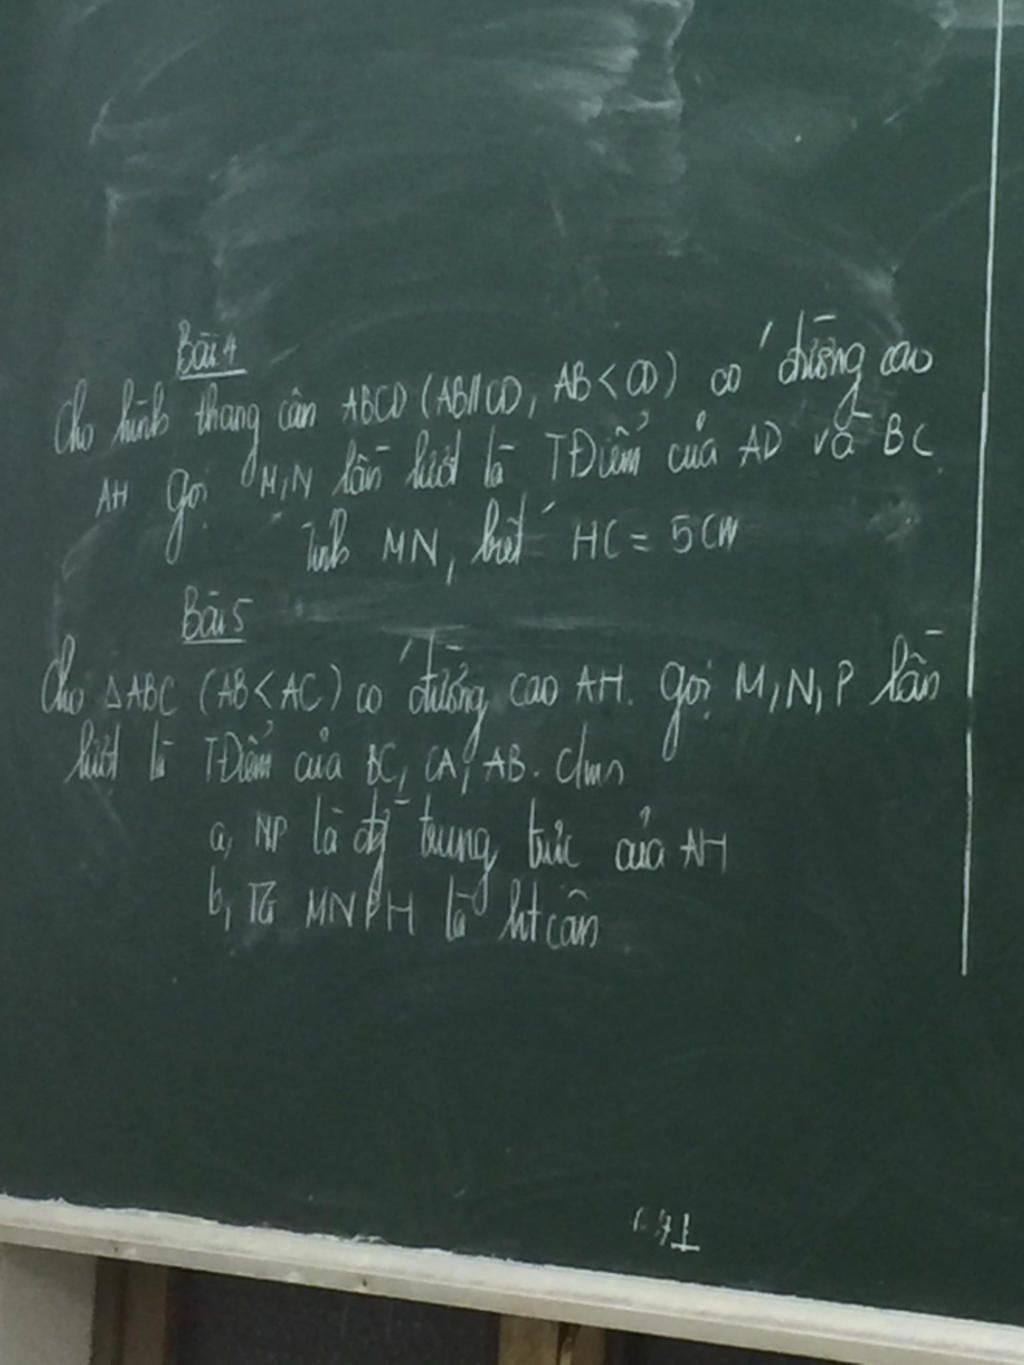 Bài 4
Cho hình thang cân ABCD (AB//CD, AB<CD) có đường cao
AH Gọi M,N lần lượt là TĐiểm của AD và BC
Tính MN, biết HC = 5cm
Bài 5
Cho △ABC (AB<AC) có đường cao AH. Gọi M,N,P lần
lượt là TĐiểm của BC, CA, AB. Cmr
a, NP là đg trung trực của AH
b, TG MNPH là ht cân